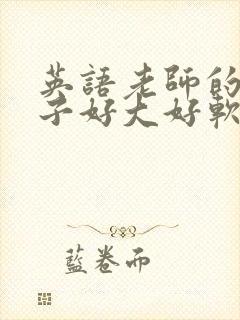 英語老師的
子好大好軟
藍卷而